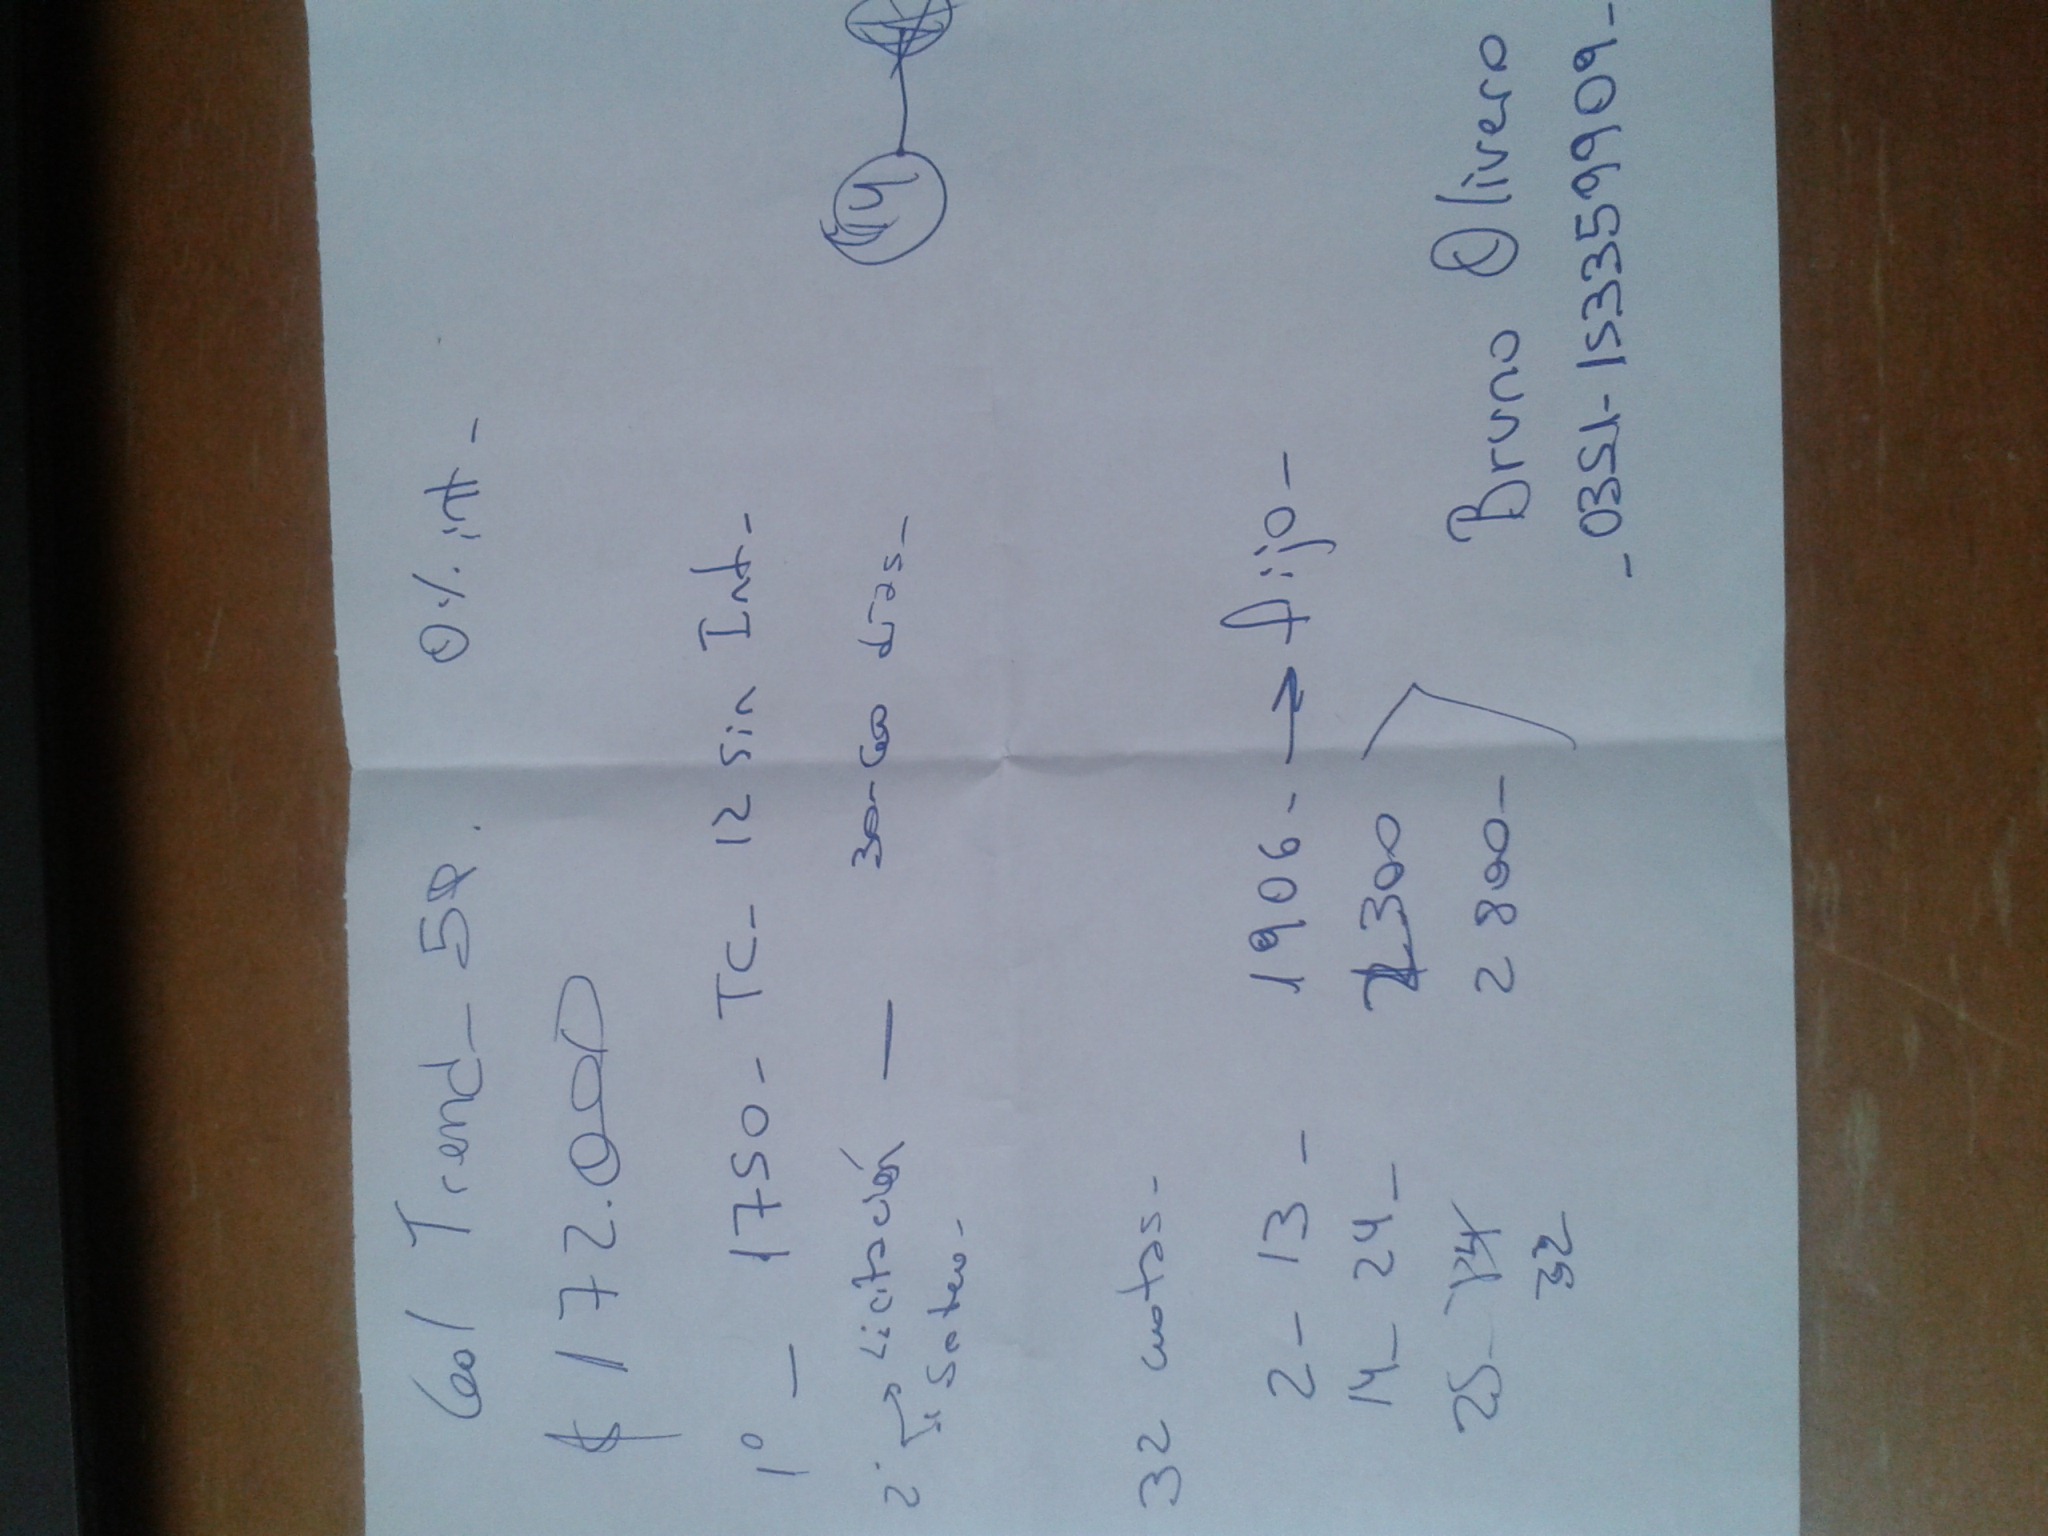 Gol Trend_ 5P. 0% int_
$ 172.000
1° _ 1750_ TC_ 12 sin Int_
2° → Licitación — 30-60 días_
Sorteo_
14
32 cuotas_
2_ 13_ 1906_ → fijo_
14_ 24_ 2300
25_ 84
2800_
32
Bruno Olivero
_0351-153359909_